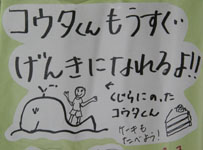 コウタくんもうすぐ
げんきになれるよ!!
くじらにのった
コウタくん
ケーキも
たべよう!